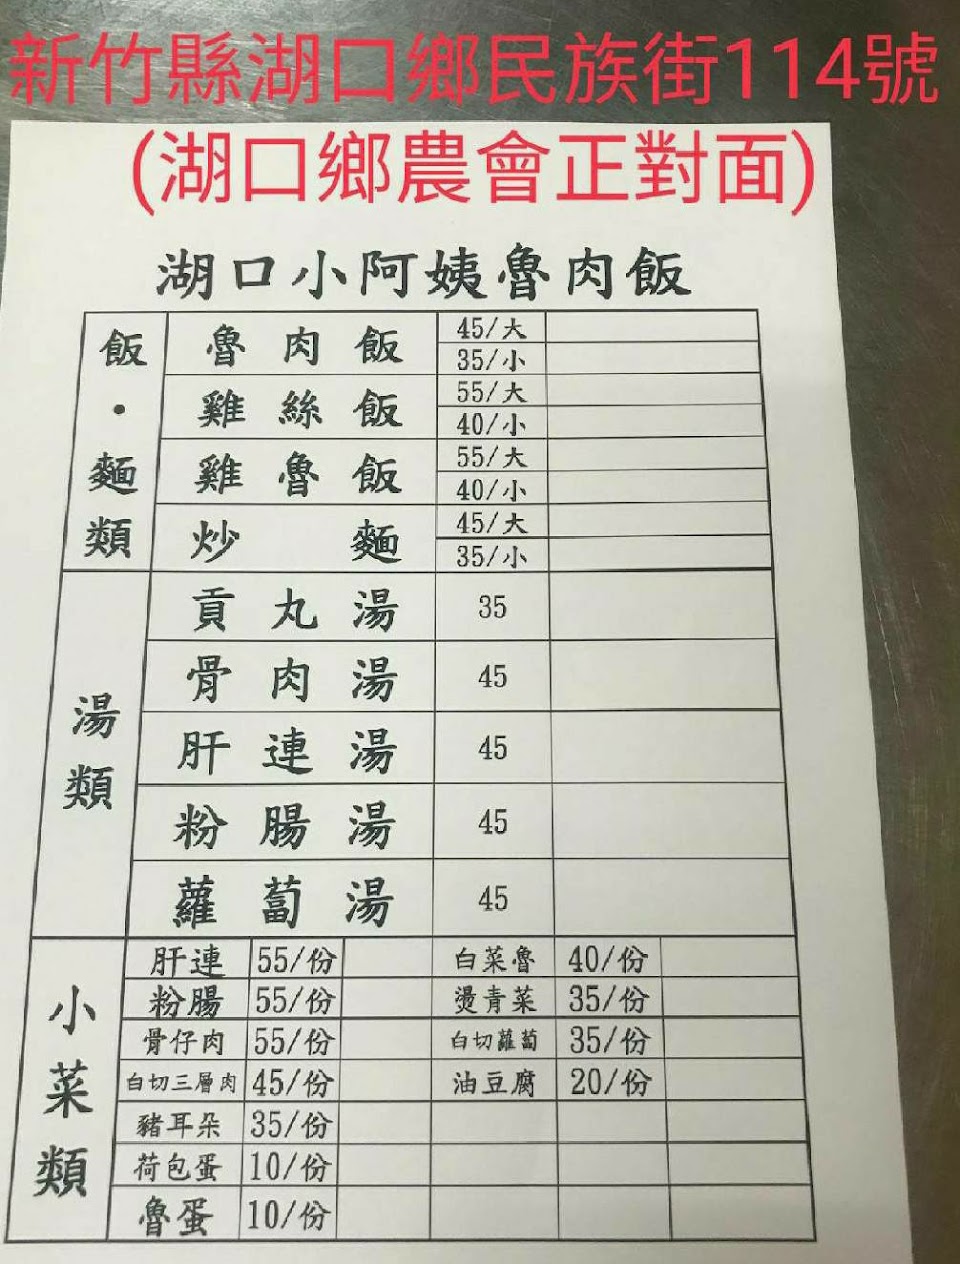 新竹縣湖口鄉民族街114號
(湖口鄉農會正對面)
湖口小阿姨魯肉飯
飯・麵類
魯肉飯 45/大
35/小
雞絲飯 55/大
40/小
雞魯飯 55/大
40/小
炒麵 45/大
35/小
湯類
貢丸湯 35
骨肉湯 45
肝連湯 45
粉腸湯 45
蘿蔔湯 45
小菜類
肝連 55/份 白菜魯 40/份
粉腸 55/份 燙青菜 35/份
骨仔肉 55/份 白切蘿蔔 35/份
白切三層肉 45/份 油豆腐 20/份
豬耳朵 35/份
荷包蛋 10/份
魯蛋 10/份